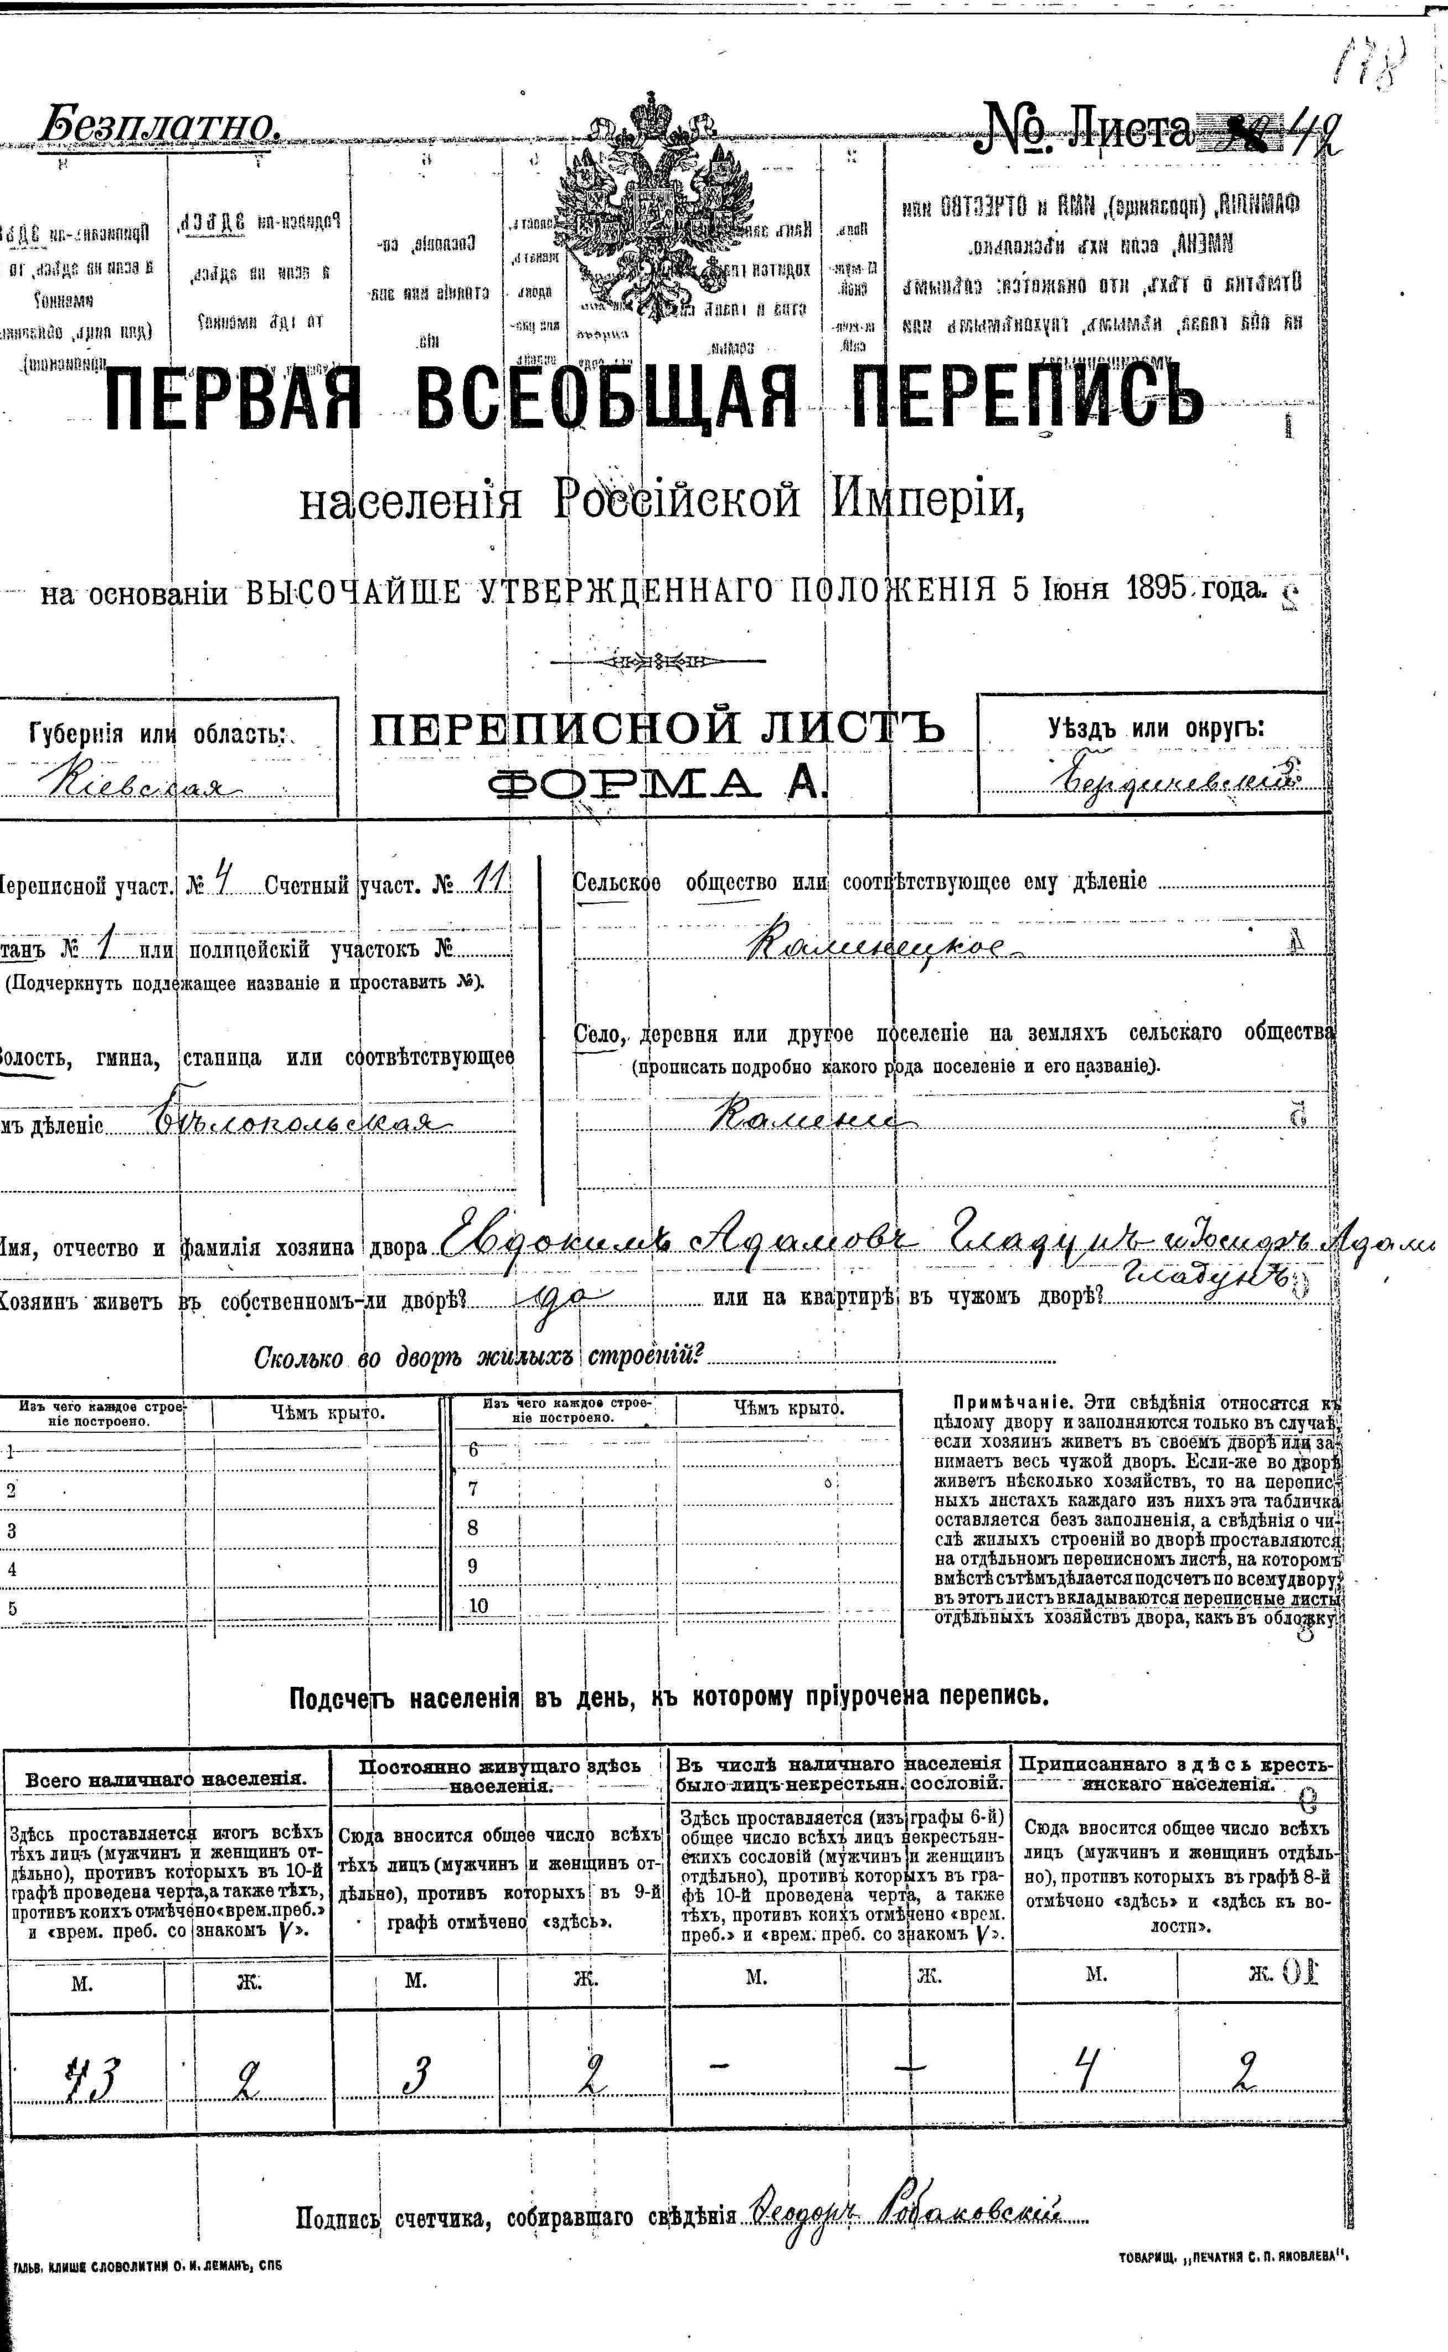 178
Безплатно.
№. Листа 42
ПЕРВАЯ ВСЕОБЩАЯ ПЕРЕПИСЬ
населенія Россійской Имперіи,
на основаніи ВЫСОЧАЙШЕ УТВЕРЖДЕННАГО ПОЛОЖЕНІЯ 5 Іюня 1895 года.
Губернія или область:
Кіевская
ПЕРЕПИСНОЙ ЛИСТЪ
ФОРМА А.
Уѣздъ или округъ:
Бердичевскій
Переписной участ. № 4 Счетный участ. № 11
танъ № 1 или полицейскій участокъ №
(Подчеркнуть подлежащее названіе и проставить №).
Волость, гмина, станица или соотвѣтствующее
мъ дѣленіе Бѣлопольская
Сельское общество или соотвѣтствующее ему дѣленіе
Каменецкое
Село, деревня или другое поселеніе на земляхъ сельскаго общества
(прописать подробно какого рода поселеніе и его названіе).
Камени
Имя, отчество и фамилія хозяина двора Евдокимъ Адамовъ Гладунъ и Іосифъ Адамо
Гладунъ
Хозяинъ живетъ въ собственномъ-ли дворѣ? да или на квартирѣ въ чужомъ дворѣ?
Сколько во дворѣ жилыхъ строеній?
Изъ чего каждое строе-
ніе построено.
Чѣмъ крыто.
Изъ чего каждое строе-
ніе построено.
Чѣмъ крыто.
1 6
2 7
3 8
4 9
5 10
Примѣчаніе. Эти свѣдѣнія относятся къ
цѣлому двору и заполняются только въ случаѣ,
если хозяинъ живетъ въ своемъ дворѣ или за-
нимаетъ весь чужой дворъ. Если-же во дворѣ
живетъ нѣсколько хозяйствъ, то на перепис-
ныхъ листахъ каждаго изъ нихъ эта табличка
оставляется безъ заполненія, а свѣдѣнія о чи-
слѣ жилыхъ строеній во дворѣ проставляются
на отдѣльномъ переписномъ листѣ, на которомъ
вмѣстѣ съ тѣмъ дѣлается подсчетъ по всему двору;
въ этотъ листъ вкладываются переписные листы
отдѣльныхъ хозяйствъ двора, какъ въ обложку.
Подсчетъ населенія въ день, къ которому пріурочена перепись.
Всего наличнаго населенія.
Здѣсь проставляется итогъ всѣхъ
тѣхъ лицъ (мужчинъ и женщинъ от-
дѣльно), противъ которыхъ въ 10-й
графѣ проведена черта, а также тѣхъ,
противъ коихъ отмѣчено «врем. преб.»
и «врем. преб. со знакомъ V».
Постоянно живущаго здѣсь
населенія.
Сюда вносится общее число всѣхъ
тѣхъ лицъ (мужчинъ и женщинъ от-
дѣльно), противъ которыхъ въ 9-й
графѣ отмѣчено «здѣсь».
Въ числѣ наличнаго населенія
было лицъ некрестьян. сословій.
Здѣсь проставляется (изъ графы 6-й)
общее число всѣхъ лицъ некрестьян-
скихъ сословій (мужчинъ и женщинъ
отдѣльно), противъ которыхъ въ гра-
фѣ 10-й проведена черта, а также
тѣхъ, противъ коихъ отмѣчено «врем.
преб.» и «врем. преб. со знакомъ V».
Приписаннаго здѣсь кресть-
янскаго населенія.
Сюда вносится общее число всѣхъ
лицъ (мужчинъ и женщинъ отдѣль-
но), противъ которыхъ въ графѣ 8-й
отмѣчено «здѣсь» и «здѣсь къ во-
лости».
М. Ж. М. Ж. М. Ж. М. Ж.
3 2 3 2 – – 4 2
Подпись счетчика, собиравшаго свѣдѣнія Ѳеодоръ Робаковскій
ГАЛЬВ. КЛИШЕ СЛОВОЛИТНИ О. И. ЛЕМАНЪ, СПБ
ТОВАРИЩ. „ПЕЧАТНЯ С. П. ЯКОВЛЕВА".